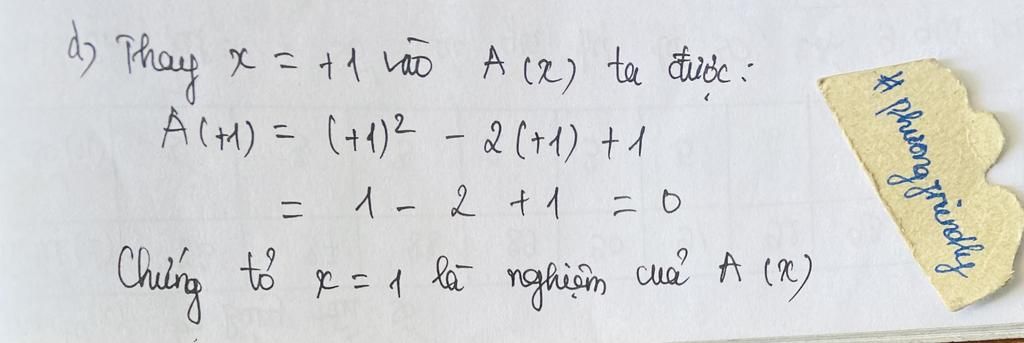 d) Thay x = +1 vào A(x) ta được:
A(+1) = (+1)² - 2(+1) +1
= 1 - 2 + 1 = 0
Chứng tỏ x = 1 là nghiệm cuả A(x)
#phuongfriendly